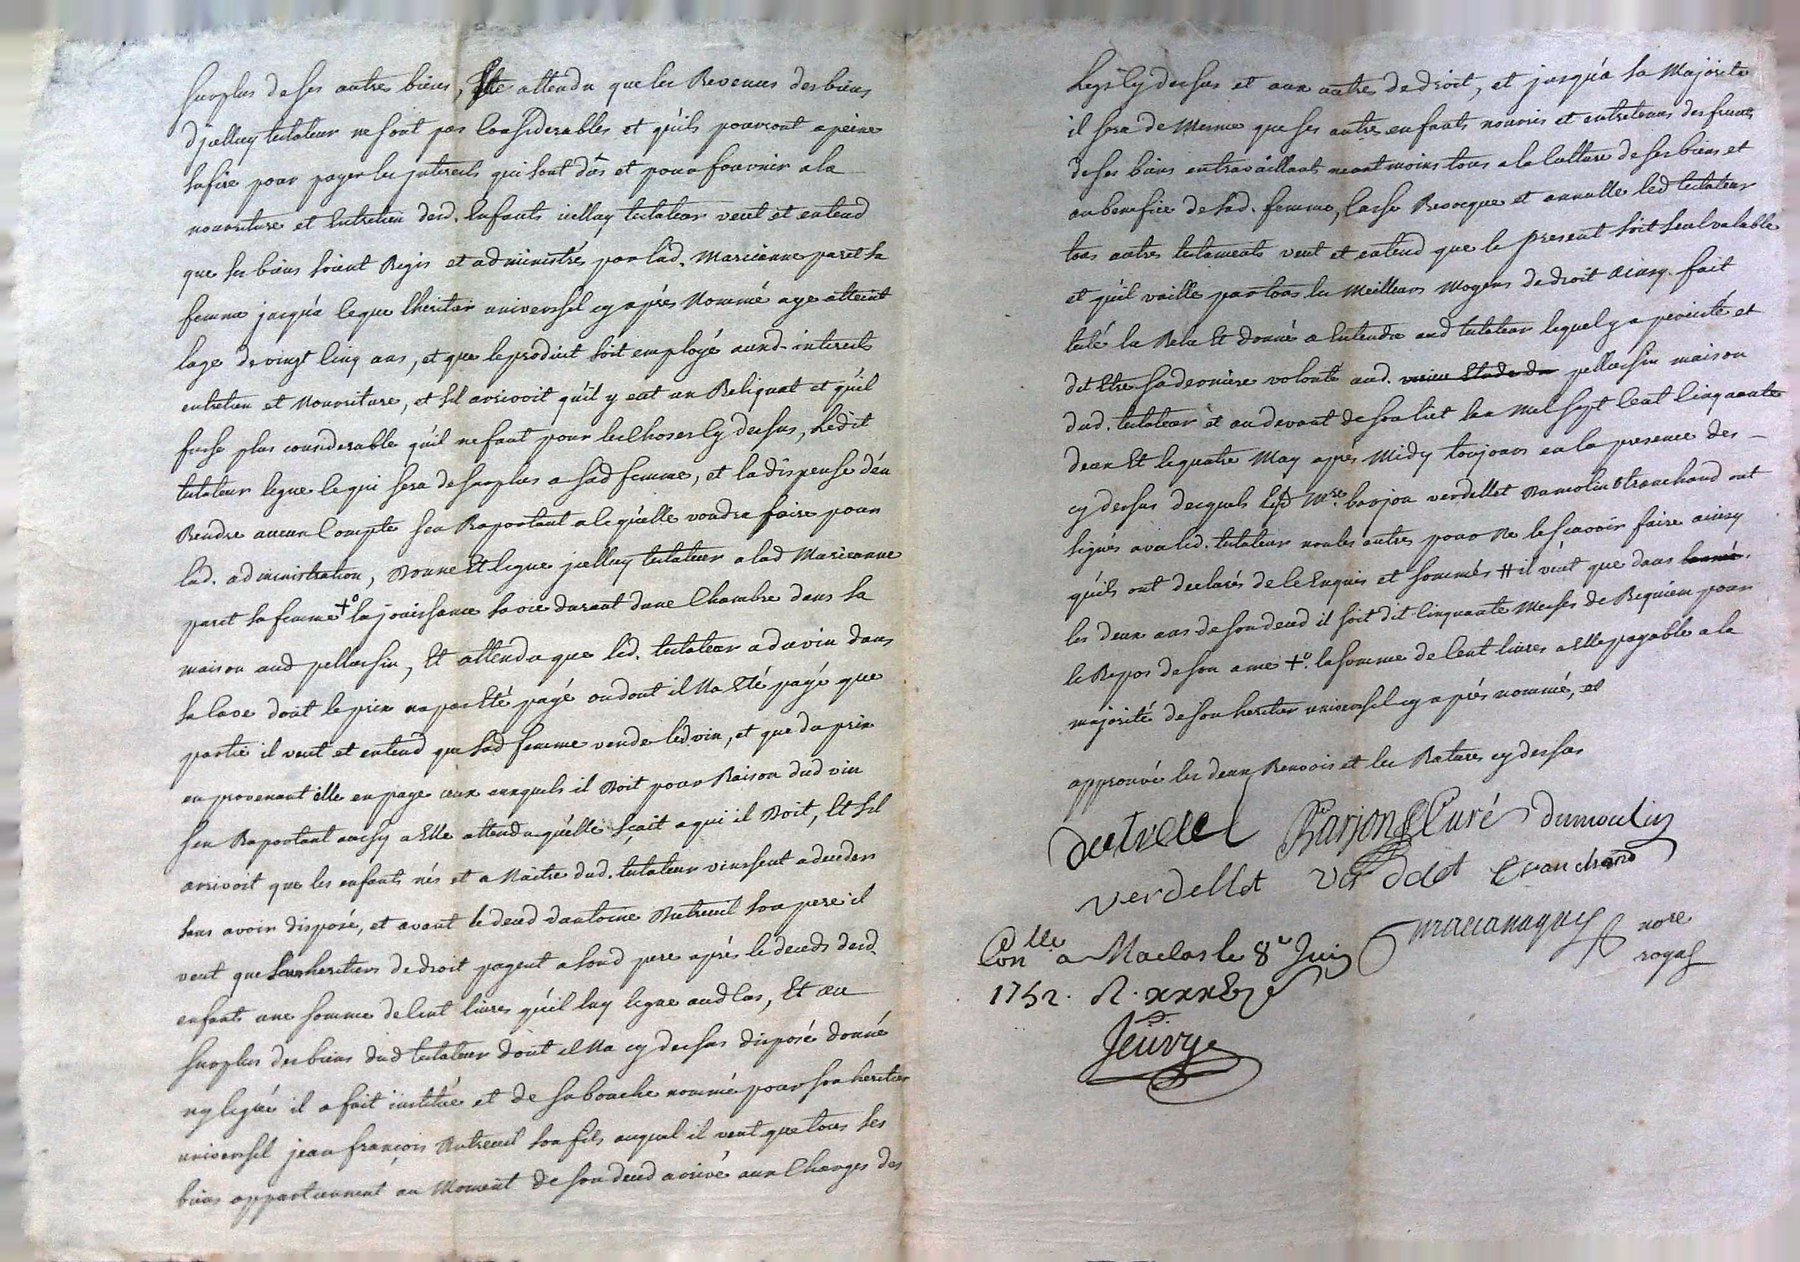 surplus de ses autres biens, Et attendu que les Revenus des biens
d'icelluy testateur ne sont pas Considerables et qu'ils pourront a peine
sufire pour payer les jnterests qui sont dûs et pour fournir a la
nourriture et Entretien desd. Enfants icelluy testateur veut et entend
que ses biens soient Regis et administrés par lad. Marieanne paret sa
femme jusqu'a ceque lheritier universsel cy après Nommé aye atteint
lage de vingt Cinq ans, et que le produit soit employé auxd. interests
entretien et Nourriture, et sil arrivoit qu'il y eut un Reliquat et qu'il
fusse plus considerable qu'il ne faut pour les Choses Cy dessus, Ledit
testateur legue ce qui sera de surplus a sad femme, et la dispense d'en
Rendre aucun Compte s'en Raportant a ce qu'elle voudra faire pour
lad. administration, Donne Et legue jcelluy testateur a lad Marieanne
paret sa femme + la jouissance sa vie durant dune Chambre dans sa
maison aud pellussin, Et attendu que led. testateur a du vin dans
sa Cave dont le prix na pas Eté payé ou dont il N'a Eté payé que
partie il veut et entend que sad femme vende led vin, et que du prix
en provenant elle en paye ceux auxquels il Doit pour Raison dud vin
sen Raportant aussy a Elle attendu qu'elle sçait a qui il Doit, Et sil
arrivoit que les enfants nés et a Naitre dud. testateur vinssent a deceder
sans avoir disposé, et avant le deced d'antoine Dutreuil son pere il
veut que ses heritiers de droit payent a sond pere après le deceds desd.
enfants une somme de Cent livres qu'il luy legue aud Cas, Et au
surplus des biens dud testateur dont il N'a cy dessus disposé donné
ny legué il a fait institué et de sa bouche nommé pour son heritier
universsel jean françois Dutreuil son fils auquel il veut que tous ses
biens appartiennent au Moment de son deced arrivé aux Charges des
legs Cy dessus et aux autres de droit, et jusqu'a sa Majorité
il sera de Mesme que ses autres enfants nourris et entretenus des fruits
de ses biens en travaillants neantmoins tous a la Culture de ses biens et
au benefice de sad. femme, Casse Revocque et annulle led testateur
tous autres testaments veut et entend que le present soit seul valable
et qu'il vaille par tous les Meilleurs Moyens de droit ainsy fait
leu la Relu Et donné a Entendre aud testateur lequel y a persisté et
dit Etre sa derniere volonté aud. pellussin maison
dud. testateur et au devant de son lict L'an Mil sept Cent Cinquante
deux Et le quatre May après Midy toujours en la presence des
cy dessus desquels Led Mre. barjon verdellet Dumolin & tranchand ont
signés avec led. testateur non les autres pour Ne le scavoir faire ainsy
qu'ils ont declarés de ce Enquis et sommés # il veut que dans
les deux ans de son deced il soit dit Cinquante Messes de Requiem pour
le Repos de son ame + la somme de Cent livres a Elle payable a la
majorité de son heritier universsel cy après nommé, et
approuvé les deux Renvois et les Ratures cy dessus
dutreul Barjon Curé dumoulin
verdellet verdelet tranchand
marcanaguey nore
royal
Conlle a Maclas le 8e Juin
1752. R. xxx
Jeurye